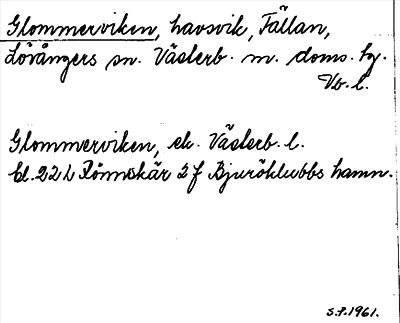 Glommerviken, havsvik, Fällan,
Lövångers sn. Västerb. m. doms. hg.
Vb. l.
Glommerviken, ek. Västerb. l.
bl. 22 L Rönnskär 2 f Bjuröklubbs hamn.
S.P. 1961.